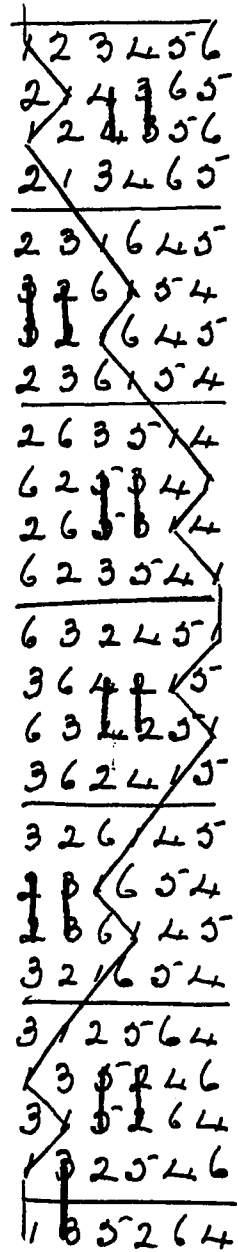 1 2 3 4 5 6
2 1 4 3 6 5
1 2 4 3 5 6
2 1 3 4 6 5
2 3 1 6 4 5
3 2 6 1 5 4
3 2 1 6 4 5
2 3 6 1 5 4
2 6 3 5 1 4
6 2 5 3 4 1
2 6 5 3 1 4
6 2 3 5 4 1
6 3 2 4 5 1
3 6 4 2 1 5
6 3 4 2 5 1
3 6 2 4 1 5
3 2 6 1 4 5
2 3 1 6 5 4
2 3 6 1 4 5
3 2 1 6 5 4
3 1 2 5 6 4
1 3 5 2 4 6
3 1 5 2 6 4
1 3 2 5 4 6
1 3 5 2 6 4